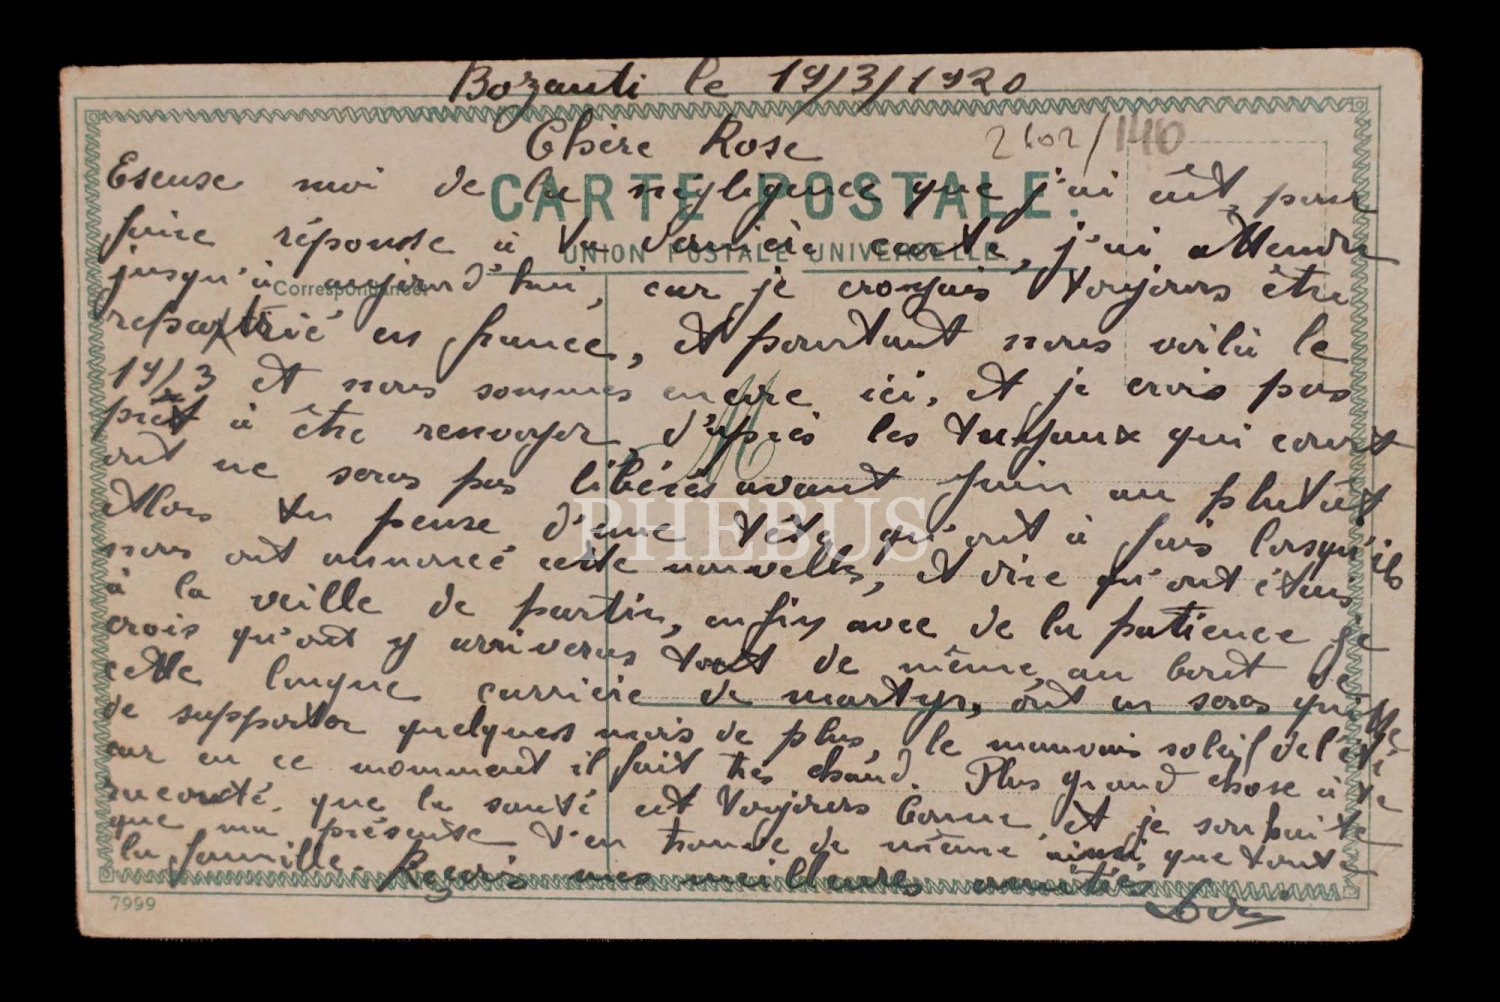 Bozanti le 19/3/1920
Chère Rose
2602/140
CARTE POSTALE.
UNION POSTALE UNIVERSELLE
Correspondance.
Escuse moi de la négligence que j'ai eût, pour
faire réponsse à ta dernière carte, j'ai attendu
jusqu'à aujourd'hui, car je croyais toujours être
repatrié en france, et pourtant nous voilà le
19/3 et nous sommes encore ici, et je crois pas
prêt à être renvoyer d'après les tuyaux qui court
ont ne seras pas libérés avant Juin au plutôt
Alors tu pense d'une tête qu'ont à fais lorsqu'ils
nous ont annoncé cette nouvelle, et dire qu'ont étais
à la veille de partir, enfin avec de la patience je
crois qu'ont y arriveras tout de même, au bout de
cette longue carrière de martyr, ont en seras quitte
de supporter quelques mois de plus, le mauvais soleil de l'été
car en ce momment il fait très chaud. Plus grand chose à te
raconté, que la santé est toujours bonne, et je souhaite
que ma présente t'en trouve de même ainsi que toute
la famille. Reçois mes meilleures amitiés
7999
PHEBUS